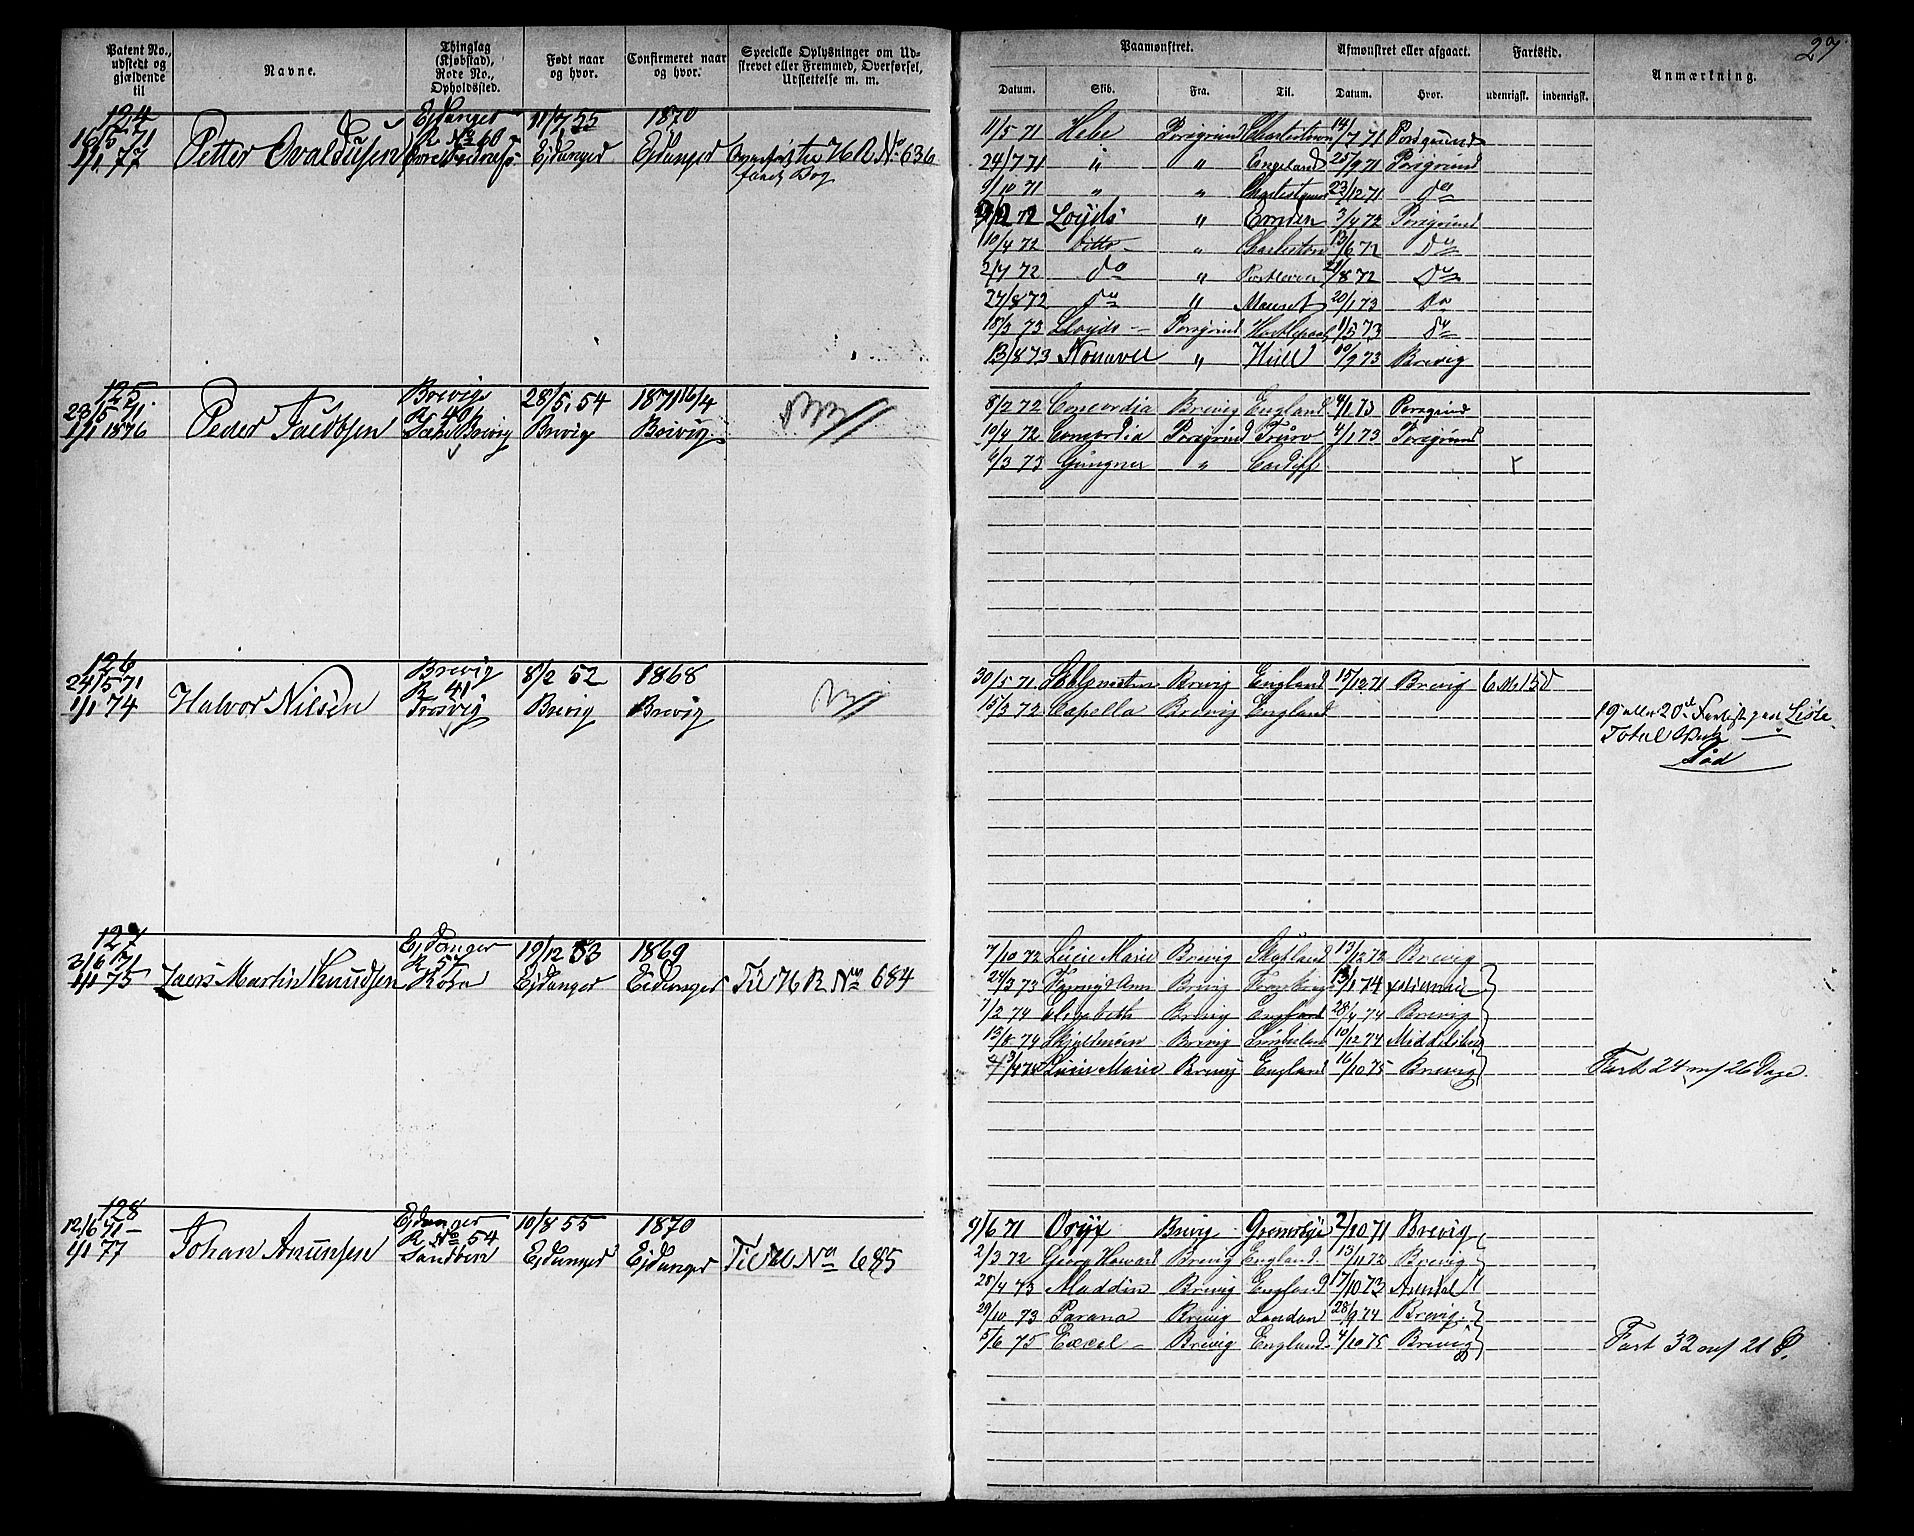 27
Patent No., udstedt og gjældende til
Navne.
Thinglag (Kjøbstad), Rode No., Opholdssted.
Født naar og hvor.
Confirmeret naar og hvor.
Specielle Oplysninger om Udskrevet eller Fremmed, Overførsel, Udslettelse m. m.
Paamønstret.
Datum. Skib. Fra. Til.
Afmønstret eller afgaaet.
Datum. Hvor.
Fartstid.
udenrigsk. indenrigsk.
Anmærkning.
124 Ejdanger 11/7 55 1870
16/5 71 R No 60
1/1 77 Petter Ovaldsen Ejdanger Ejdanger Overført til H R No 636
11/5 71 Hebe Porsgrund Charlestown 14/7 71 Porsgrund
24/7 71 " " Engeland 25/9 71 Porsgrund
9/10 71 " " Charlestown 23/12 71 do
9/2 72 Loyds " Emden 3/4 72 Porsgrund
10/4 72 Ditto " Charlestown 13/6 72 do
2/7 72 do " 8 72 do
27/8 72 do " 20/1 73 do
18/3 73 Lloyds Porsgrund Hartlepool 1/5 73 do
13/8 73 " Hull 10/9 73 Brevig
125 Brevig 28/5 54 1871 16/4
23/5 71 R 40
1/1 1876 Peder Jacobsen Brevig Brevig Brevig
8/2 72 Concordia Brevig England 4/1 73 Porsgrund
19/4 72 Concordia Porsgrund Truro 4/1 73 Porsgrund
4/3 73 Gungner " Cardiff
126 Brevig 8/2 52 1868
24/5 71 R 41
1/1 74 Halvor Nilsen Trosvig Brevig Brevig
30/5 71 Brevig England 15/12 71 Brevig 6 M 15 D
15/3 72 Capella Brevig England
Total
Død
127 Ejdanger 19/12 53 1869
3/6 71 R 57
1/1 75 Lars Martin Knudsen Ejdanger Ejdanger Til H R No 684
7/10 72 Lucie Marie Brevig Skotland 13/12 72 Brevig
24/3 73 Brevig 13/1 74
7/2 74 Elisabeth Brevig England 28/4 74 Brevig
Brevig 10/12 74
Lucie Marie Brevig England 16/10 75 Brevig
Fart 24 m 26 Dage.
128 Ejdanger 10/8 55 1870
12/6 71 R No 54
1/1 77 Johan Amundsen Sandven Ejdanger Ejdanger Til H No 685
9/6 71 Oryx Brevig 2/10 71 Brevig
2/3 72 Georg Howard Brevig England 13/11 72 Brevig
28/4 73 Brevig England 17/10 73 Arendal
29/10 73 Parana Brevig London 28/9 74 Brevig
5/6 75 Excel Brevig England 4/10 75 Brevig
Fart 32 m 21 D.